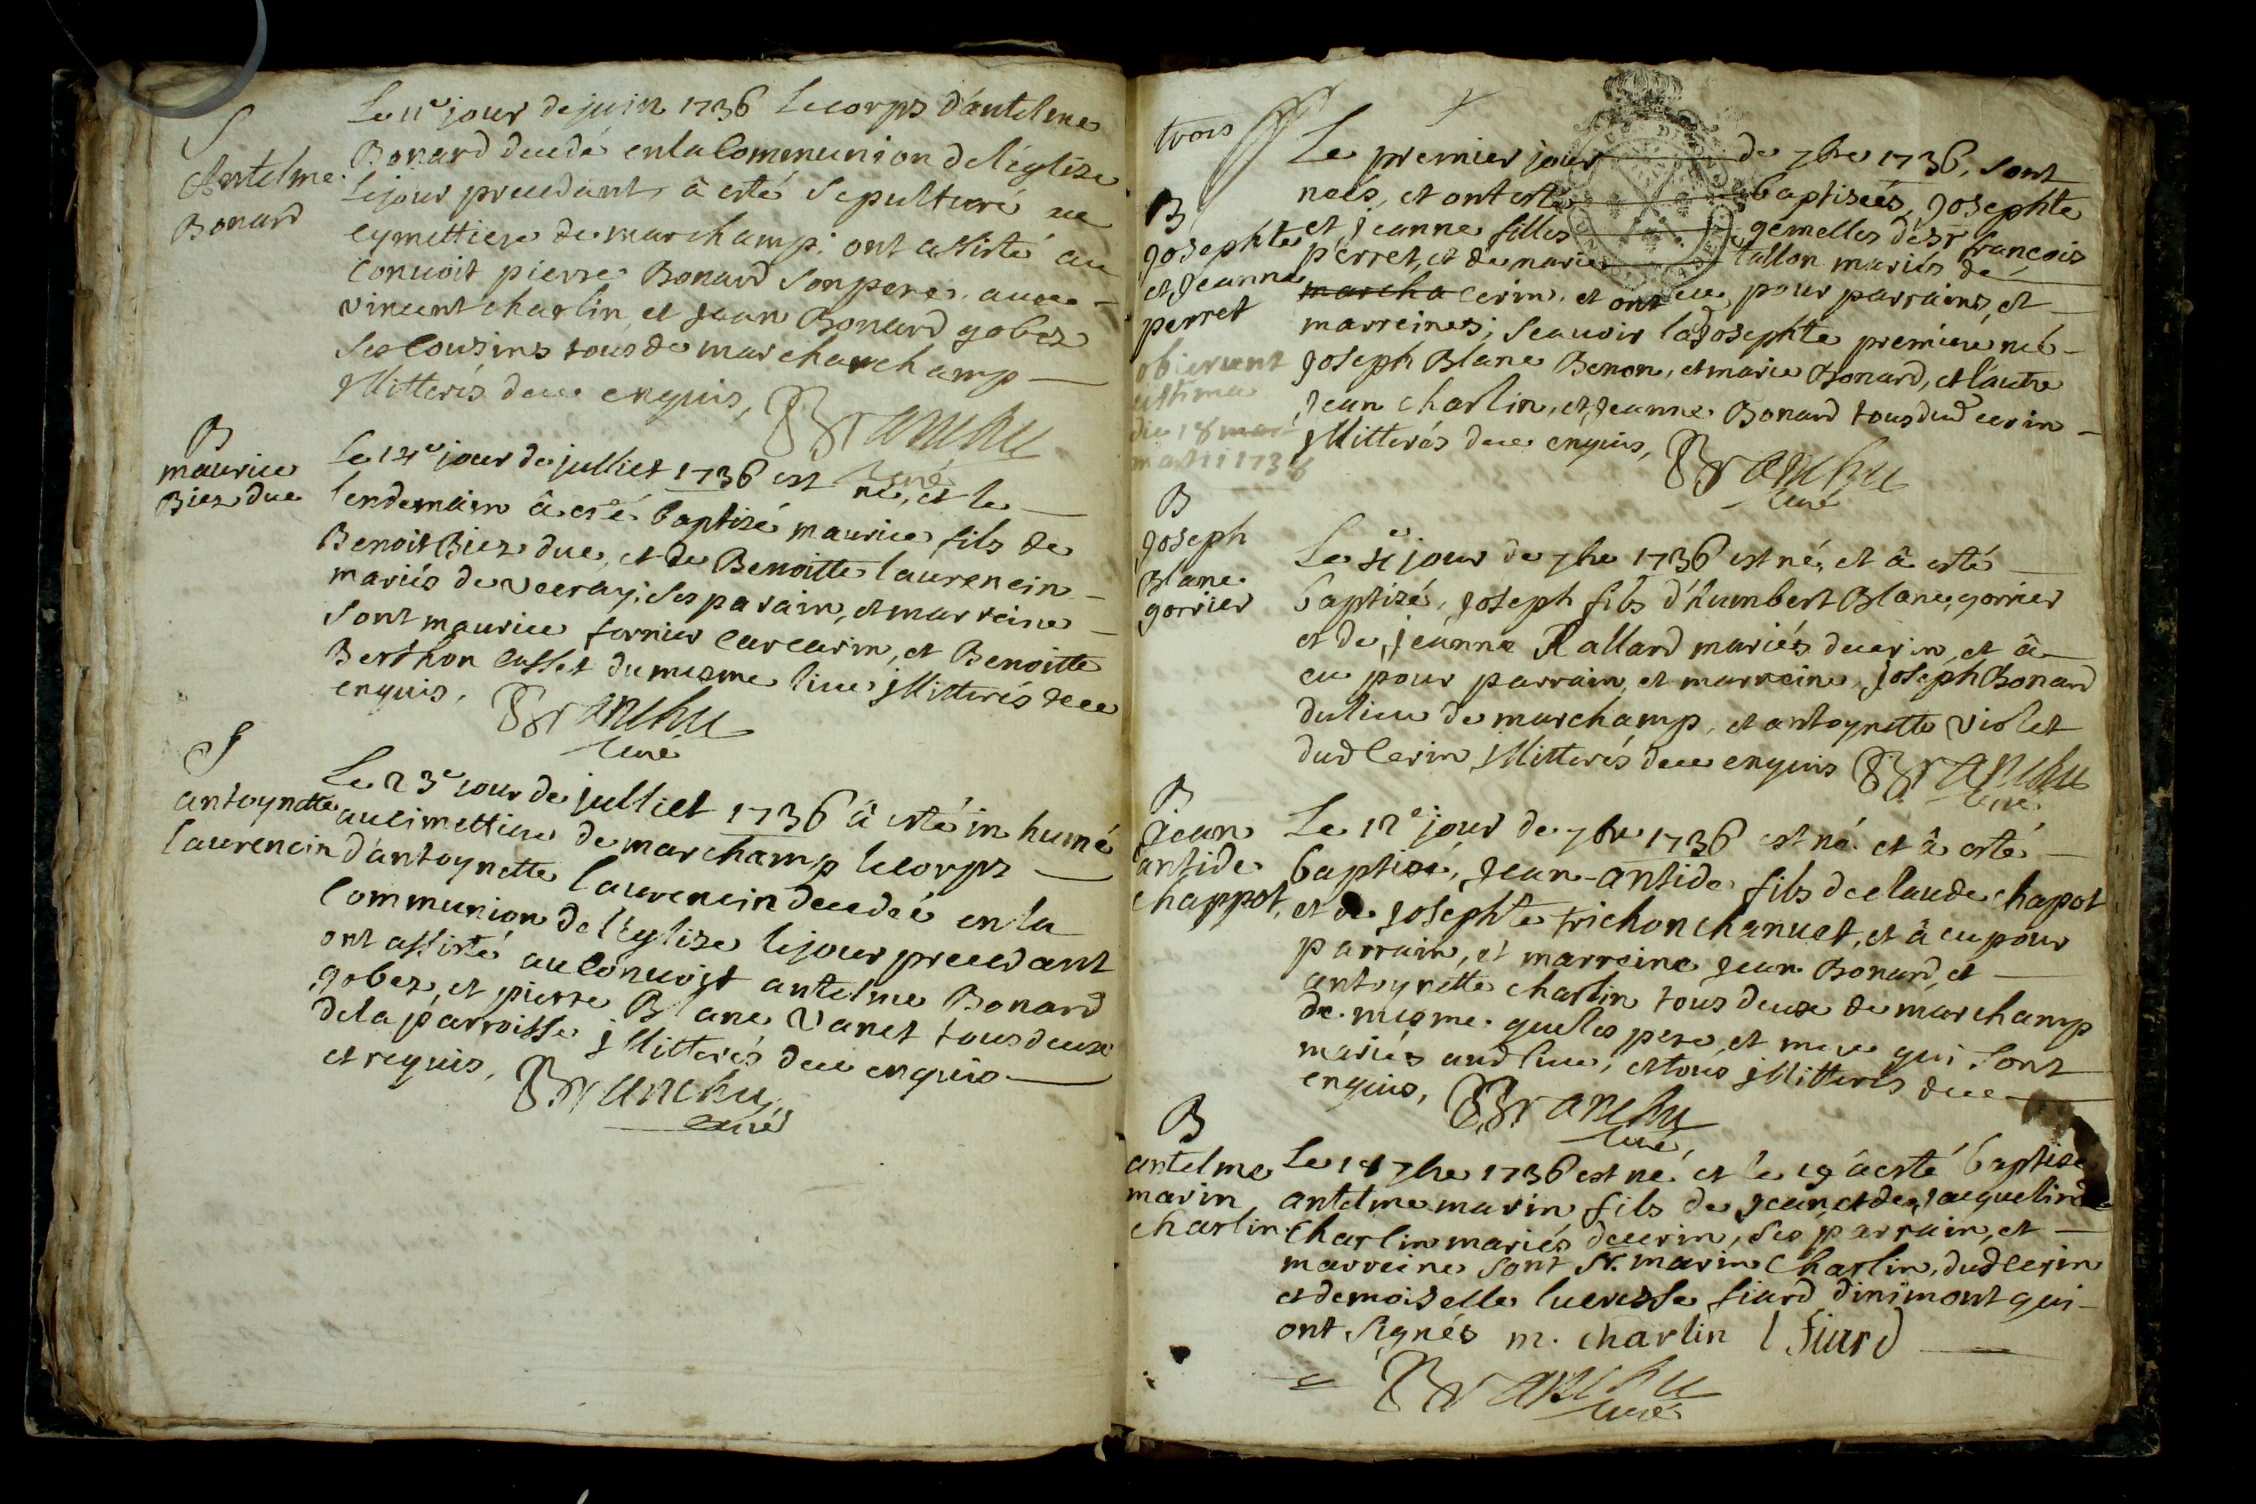 S
Antelme
Bonard
Le 11e jour de juin 1736 le corps d'antelme
Bonard decedé en la Communion de l'église
le jour precedant, â esté sepulturé au
cymettiere de marchamp: ont assisté au
Convoit pierre Bonard son pere, avec
vincent charlin, et Jean Bonard gobez
ses Cousins tous de marchamp
jllitterés de ce enquis, Branchu
curé
B
maurice
Biez duc
Le 14e jour de julliet 1736 est né, et le
lendemain â esté baptizé maurice fils de
Benoit Biez duc, et de Benoitte laurencin
mariés de veeray; ses parain, et marreine
sont maurice fornier carcarin, et Benoitte
Berthon Casset du mesme lieu jllitterés de ce
enquis. Branchu
curé
S
antoynette
laurencin
Le 23e jour de julliet 1736 â esté inhumé
au cimettiere de marchamp le corps
d'antoynette laurencin decedeé en la
Communion de l'église le jour precedant
ont assisté au Convoit antelme Bonard
gobez, et pierre Blanc vanet tous deux
de la parroisse jllitterés de ce enquis
et requis, Branchu
curé
trois
B
Josephte
et Jeanne
perret
obierunt
ultima
die 18
martii 1738
Le premier jour de 7bre 1736, sont
neés, et ont esté baptiseés, Josephte
et Jeanne filles gemelles de Sr françois
perret, et de marie tallon mariés de
cerin, et ont eu pour parrains, et
marreines; scauvoir lad Josephte premiere neé
Joseph Blanc Benon, et marie Bonard, et l'autre
Jean charlin, et Jeanne Bonard tous dud cerin
jllitterés de ce enquis, Branchu
curé
B
Joseph
Blanc
gorrier
Le 4e jour de 7bre 1736 est né, et â esté
baptizé, Joseph fils d'humbert Blanc, gorrier
et de Jeanne Rallard mariés de cerin, et â
eu pour parrain, et marreine, Joseph Bonard
du lieu de marchamp, et antoynette violet
dud Cerin jllitterés de ce enquis Branchu
curé
B
Jean
antide
chappot,
Le 12e jour de 7bre 1736 est né et â esté
baptisé, Jean-antide fils de claude chapot
et de Josephte trichon chanuet, et â eu pour
parrain, et marreine Jean Bonard, et
antoynette charlin tous deux de marchamp
de mesme que les pere, et mere qui sont
mariés aud lieu, et tous jllitterés de ce
enquis, Branchu
curé
B
antelme
marin
charlin
Le 18 7bre 1736 est né et le 19 â esté baptizé
antelme marin fils de Jean, et de Jacqueline
Charlin mariés de cerin, ses parrain, et
marreine sont Sr. marin Charlin, dud cerin
et demoiselle lucresse fiard d'inimont qui
ont signés m. charlin l fiard
Branchu
curé